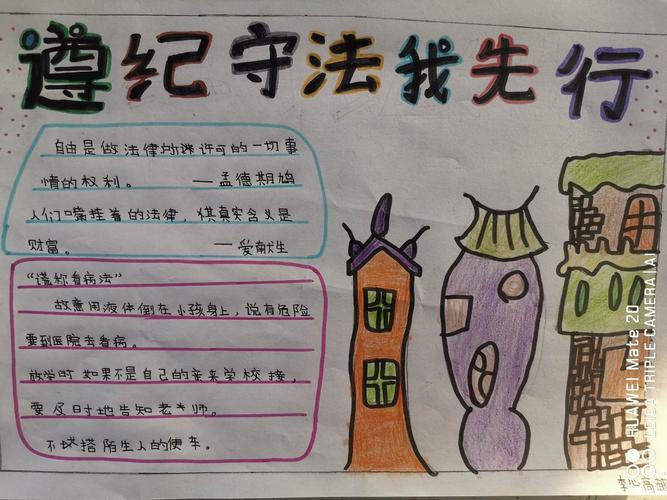 遵纪守法我先行
自由是做法律所许可的一切事
情的权利。 ——孟德斯鸠
人们嘴挂着的法律，其真实含义是
财富。 ——爱献生
“谎称看病法”
故意用液体倒在小孩身上，说有危险
要到医院去看病。
放学时如果不是自己的亲来学校接，
要及时地告知老师。
不求搭陌生人的便车。
HUAWEI Mate 20
LEICA TRIPLE CAMERA | AI